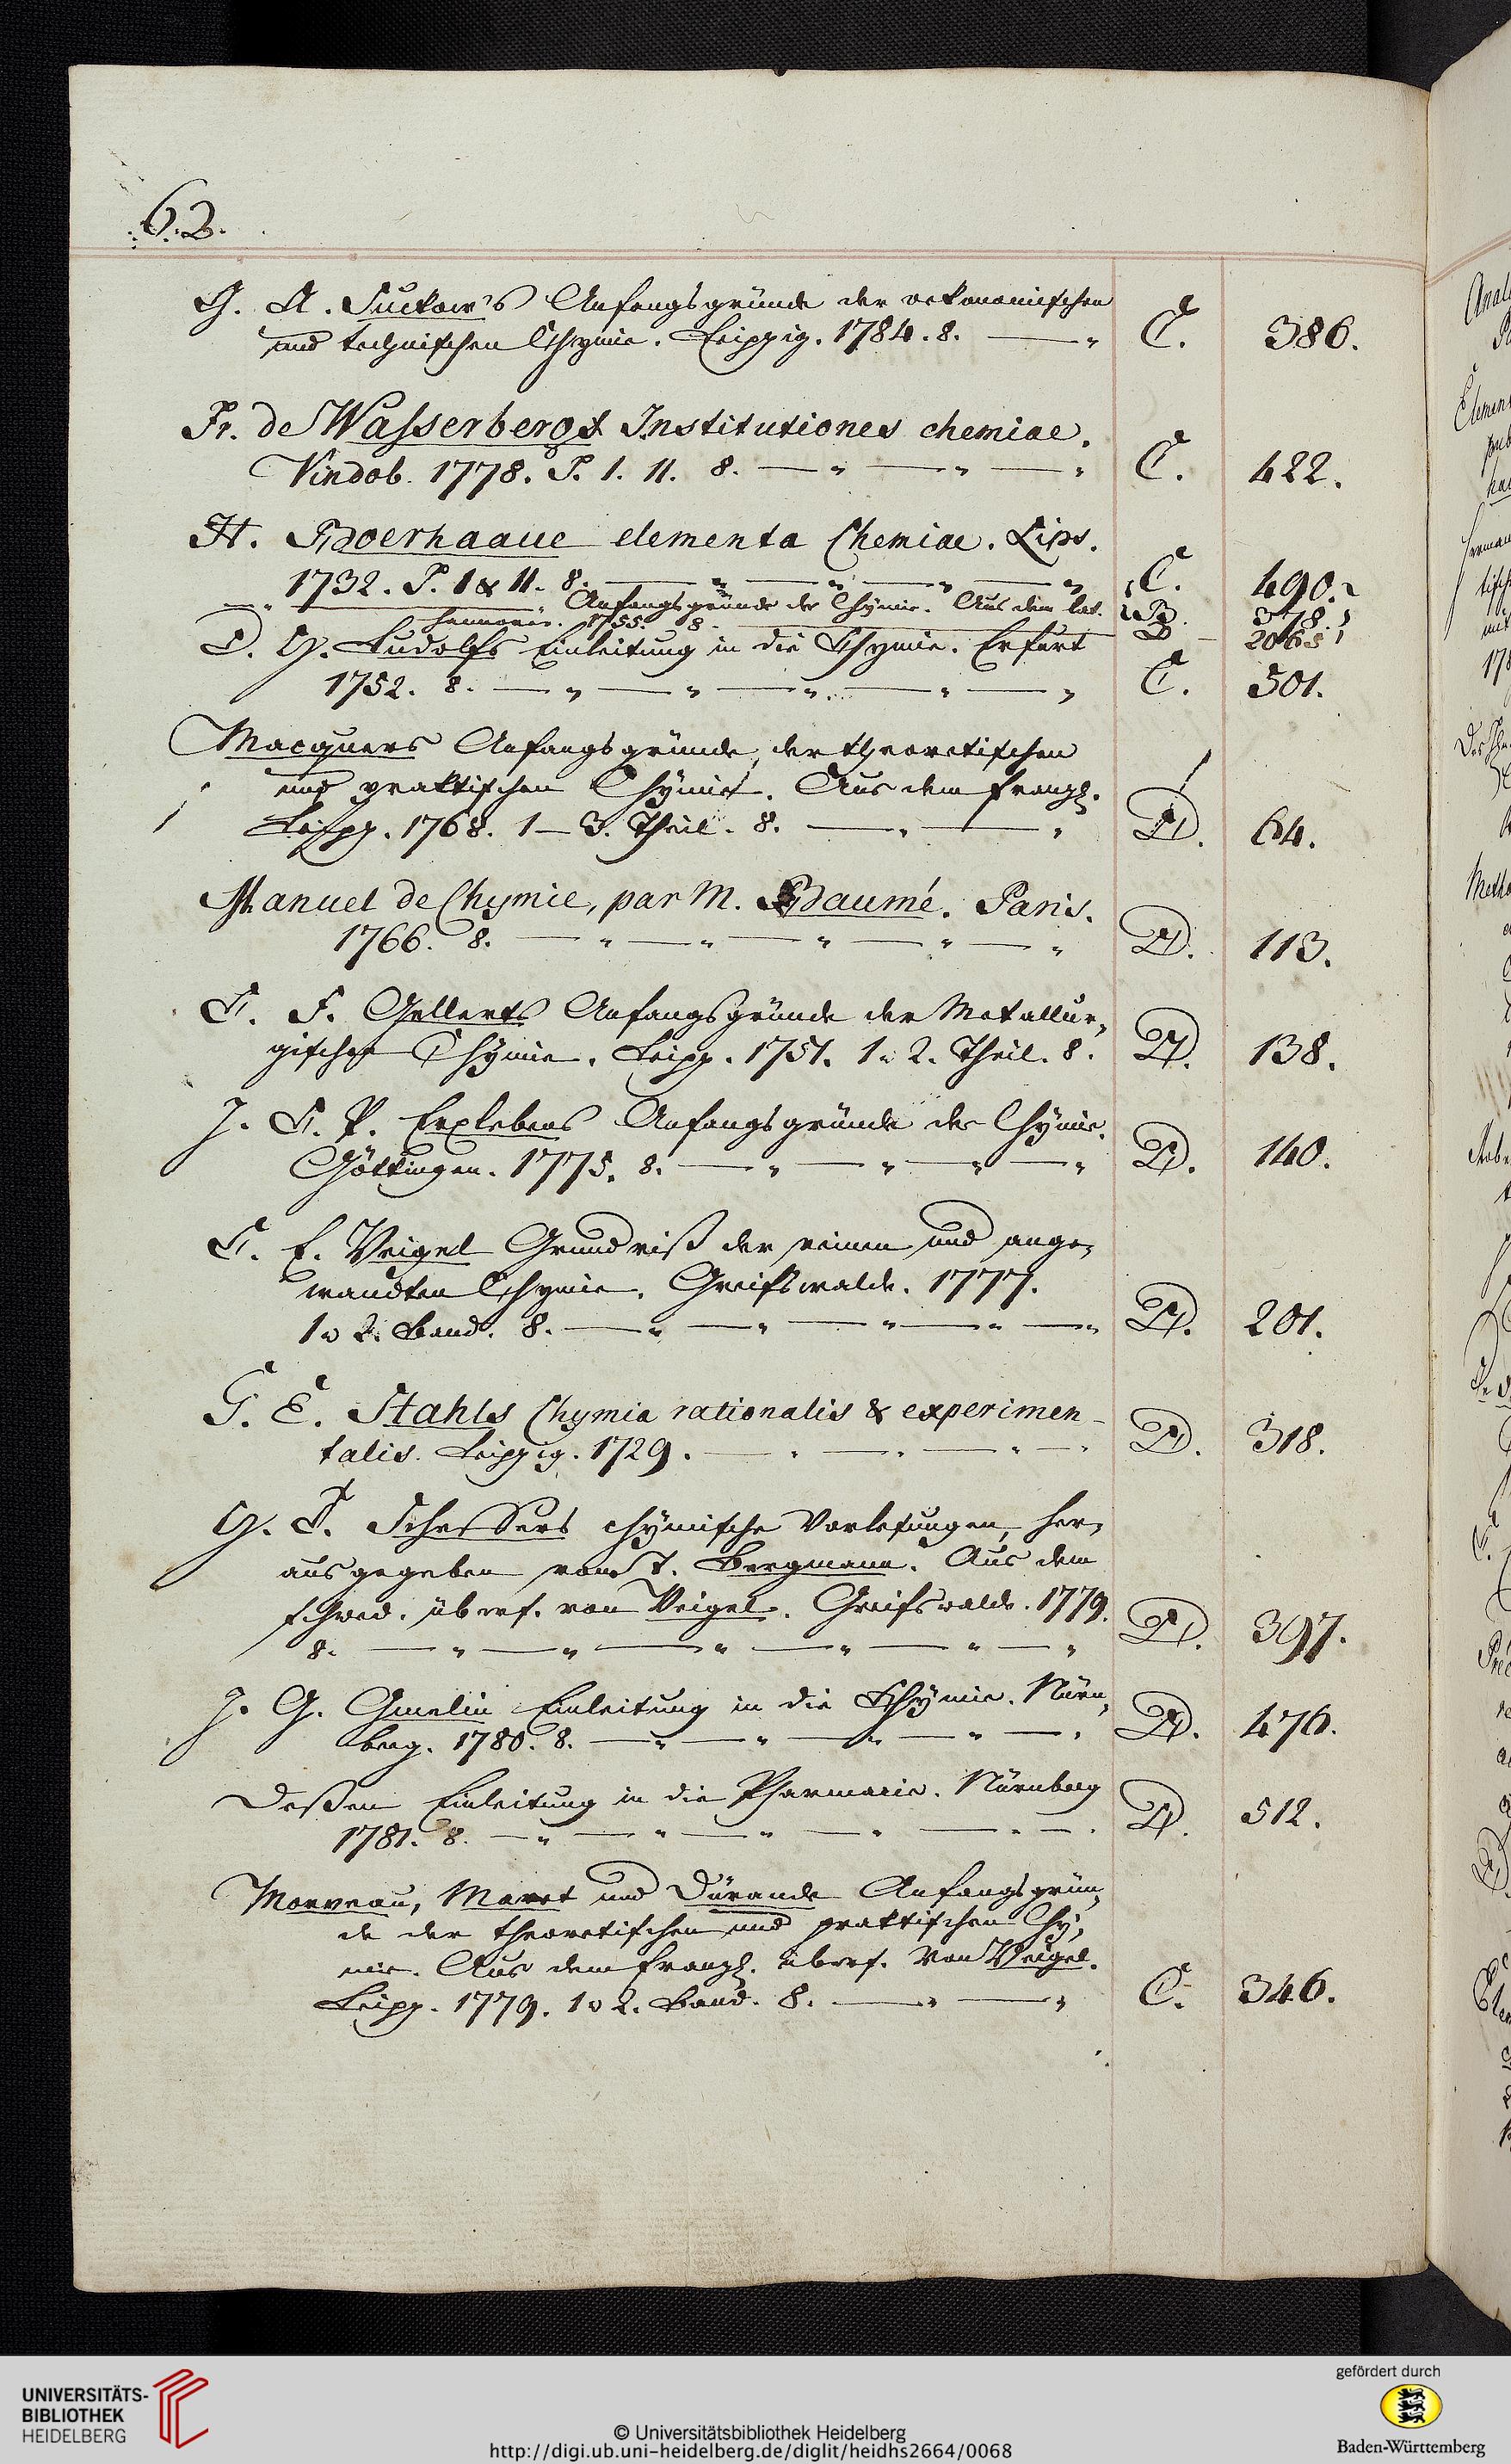 62.
G. A. Suckow's Anfangsgründe der oekonomischen
und technischen Chymie. Leipzig. 1784. 8. — " C. 386.
Fr. de Wasserberg Institutiones chemiae.
Vindob. 1778. P. 1. 11. 8. — " — " — " C. 422.
H. Boerhaave elementa Chemiae. Lips.
1732. P. 1 & 11. 8. — " — " — " — " C. 490.
— " Anfangsgründe der Chymie. Aus dem lat. B. 378.
Hannover. 1755. 8. — B — 2065
D. G. Ludolfs Einleitung in die Chymie. Erfurt
1752. 8. — " — " — " — " — " C. 501.
Macquers Anfangsgründe der theoretischen
und praktischen Chymie. Aus dem Französ.
Leipz. 1768. 1–3. Theil. 8. — " — " D. 64.
Manuel de Chymie, par M. Baumé. Paris.
1766. 8. — " — " — " — " — " D. 113.
C. F. Gellerts Anfangsgründe der Metallur-
gischen Chymie. Leipz. 1751. 1. 2. Theil. 8. D. 138.
J. C. P. Erxlebens Anfangsgründe der Chymie.
Göttingen. 1775. 8. — " — " — " — " D. 140.
C. E. Weigel Grundriß der reinen und ange-
wandten Chymie. Greifswalde. 1777.
1 u 2. Band. 8. — " — " — " — " — " D. 201.
G. E. Stahls Chymia rationalis & experimen-
talis. Leipzig. 1729. — " — " — " — " D. 318.
G. T. Scheffers chymische Vorlesungen, her-
ausgegeben von T. Bergmann. Aus dem
schwed. übers. von Weigel. Greifswalde. 1779.
8. — " — " — " — " — " — " D. 397.
J. G. Gmelin Einleitung in die Chymie. Nürn-
berg. 1780. 8. — " — " — " — " — " D. 476.
Deßen Einleitung in die Pharmacie. Nürnberg
1781. 8. — " — " — " — " — " — " D. 512.
Morveau, Maret und Dürande Anfangsgrün-
de der theoretischen und praktischen Chy-
mie. Aus dem Französ. übers. von Weigel.
Leipz. 1779. 1 u 2. Band. 8. — " — " C. 346.
UNIVERSITÄTS-
BIBLIOTHEK
HEIDELBERG
© Universitätsbibliothek Heidelberg
http://digi.ub.uni-heidelberg.de/diglit/heidhs2664/0068
gefördert durch
Baden-Württemberg